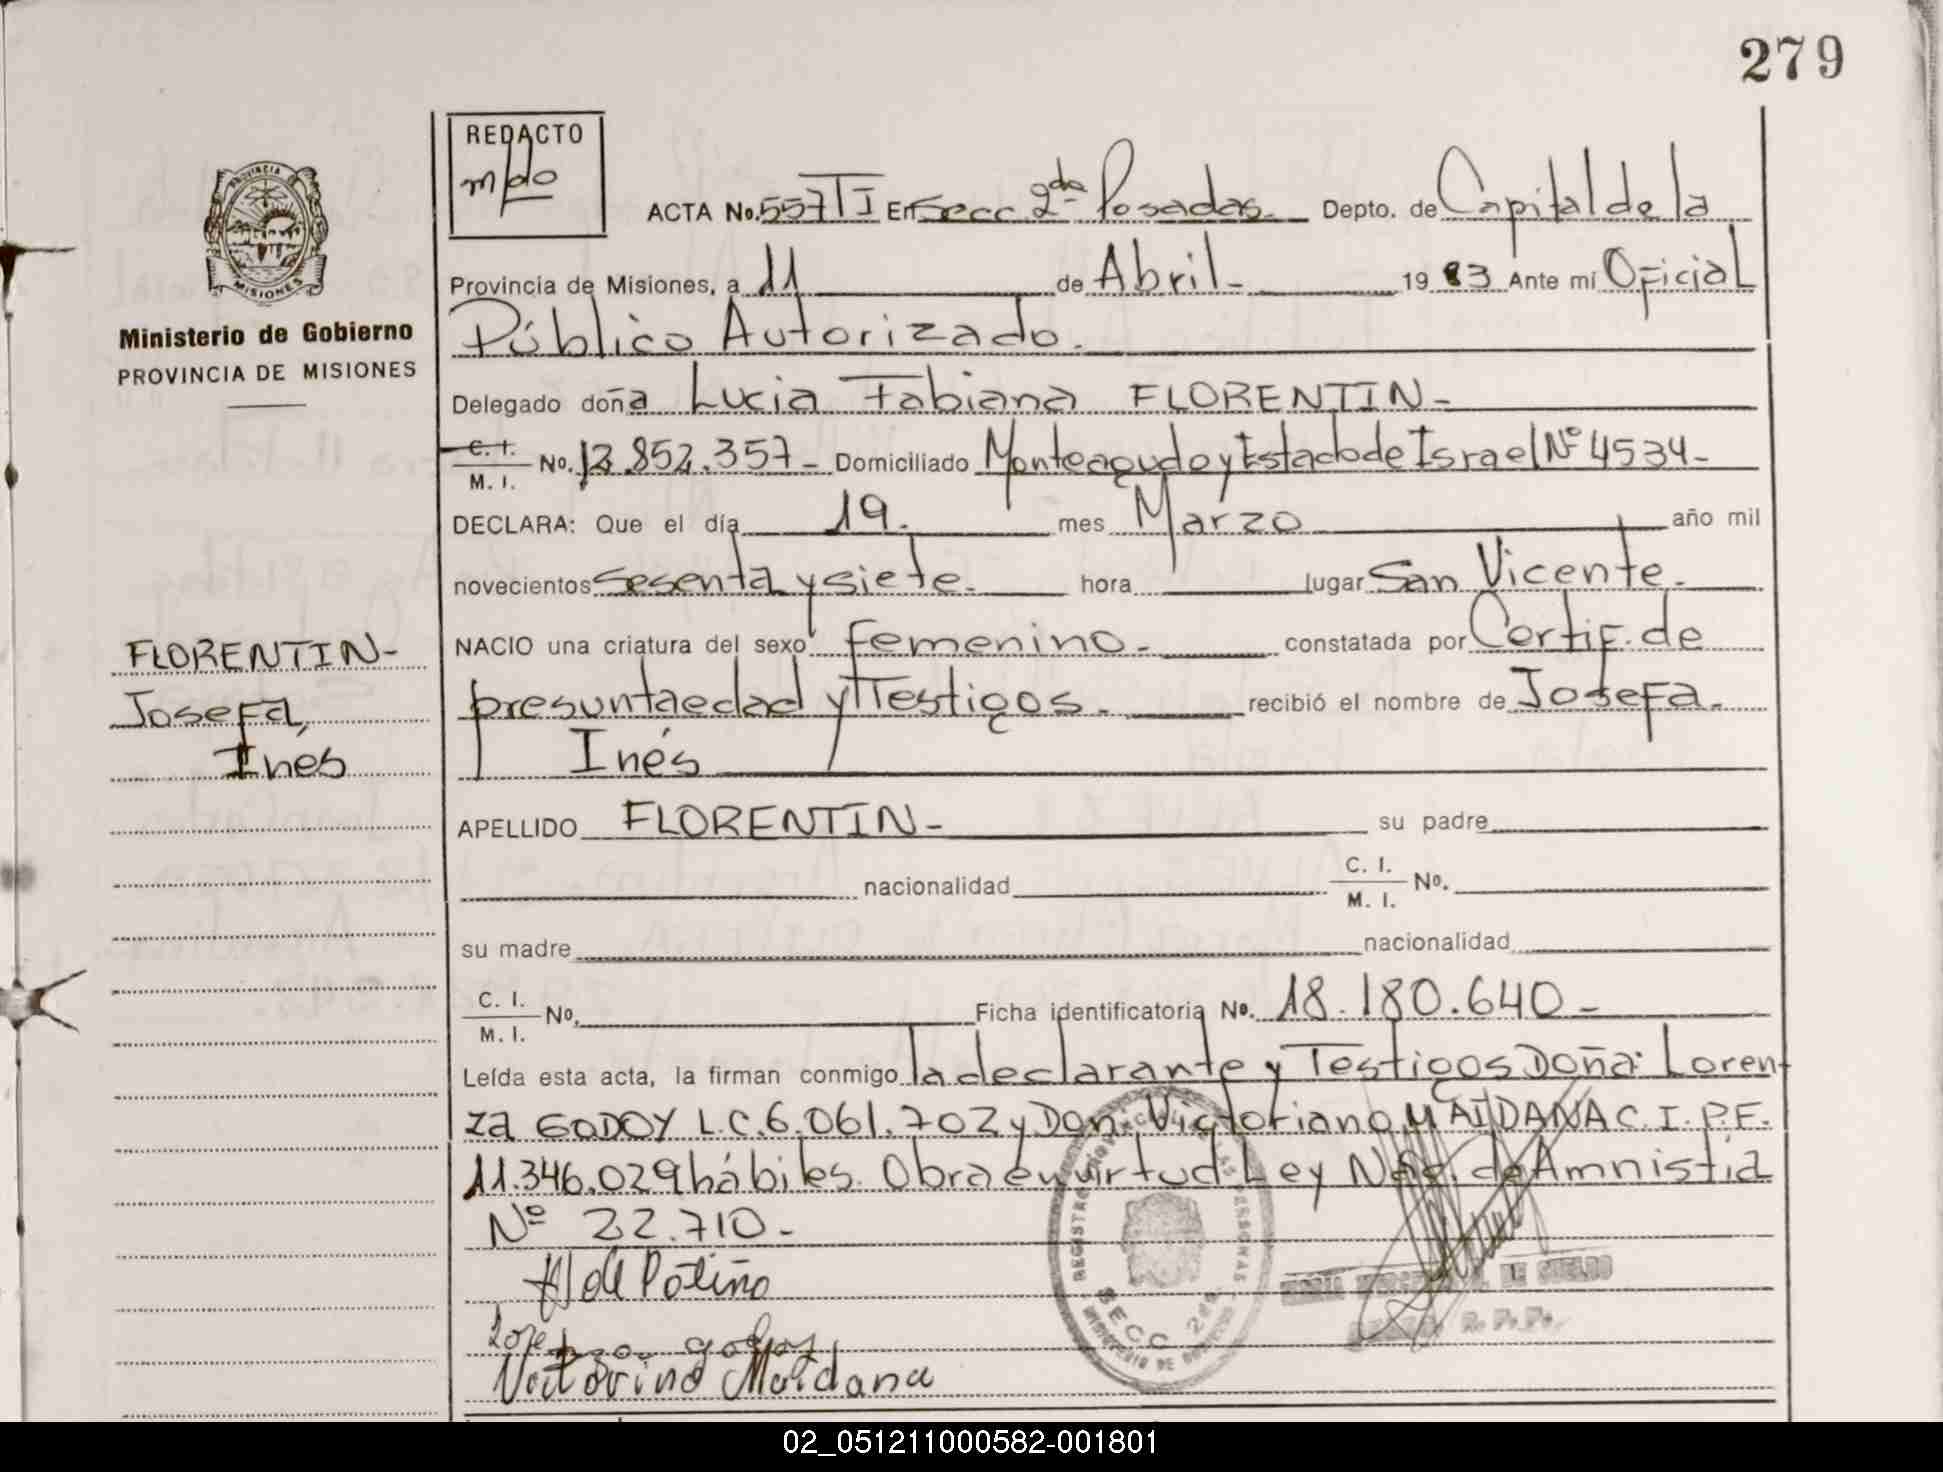 279
REDACTO
ACTA No. 557 TI En Secc 2da Posadas. Depto. de Capital de la
PROVINCIA
MISIONES
Provincia de Misiones, a 11 de Abril- 1983 Ante mi Oficial
Ministerio de Gobierno
Público Autorizado.
PROVINCIA DE MISIONES
Delegado doña Lucia Fabiana FLORENTIN-
C. I.
M. I. No. 12.852.357- Domiciliado Monteagudo y Estado de Israel Nº 4534-
DECLARA: Que el día 19. mes Marzo año mil
novecientos sesenta y siete. hora lugar San Vicente.
FLORENTIN- NACIO una criatura del sexo femenino- constatada por Certif. de
Josefa, presunta edad y Testigos. recibió el nombre de Josefa.
Inés Inés
APELLIDO FLORENTIN- su padre
nacionalidad C. I. M. I. No.
su madre nacionalidad
C. I. M. I. No. Ficha identificatoria No. 18.180.640-
Leída esta acta, la firman conmigo la declarante y Testigos Doña: Loren-
za GODOY L.C.6.061.702 y Don. Victoriano MAIDANA C.I.P.F.
11.346.029 hábiles. Obra en virtud Ley Nac. de Amnistia
Nº 22.710-
SECC 2da.
Maidana
02_051211000582-001801